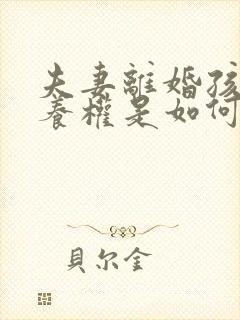 夫妻離婚孩
養權是如何
貝尔金